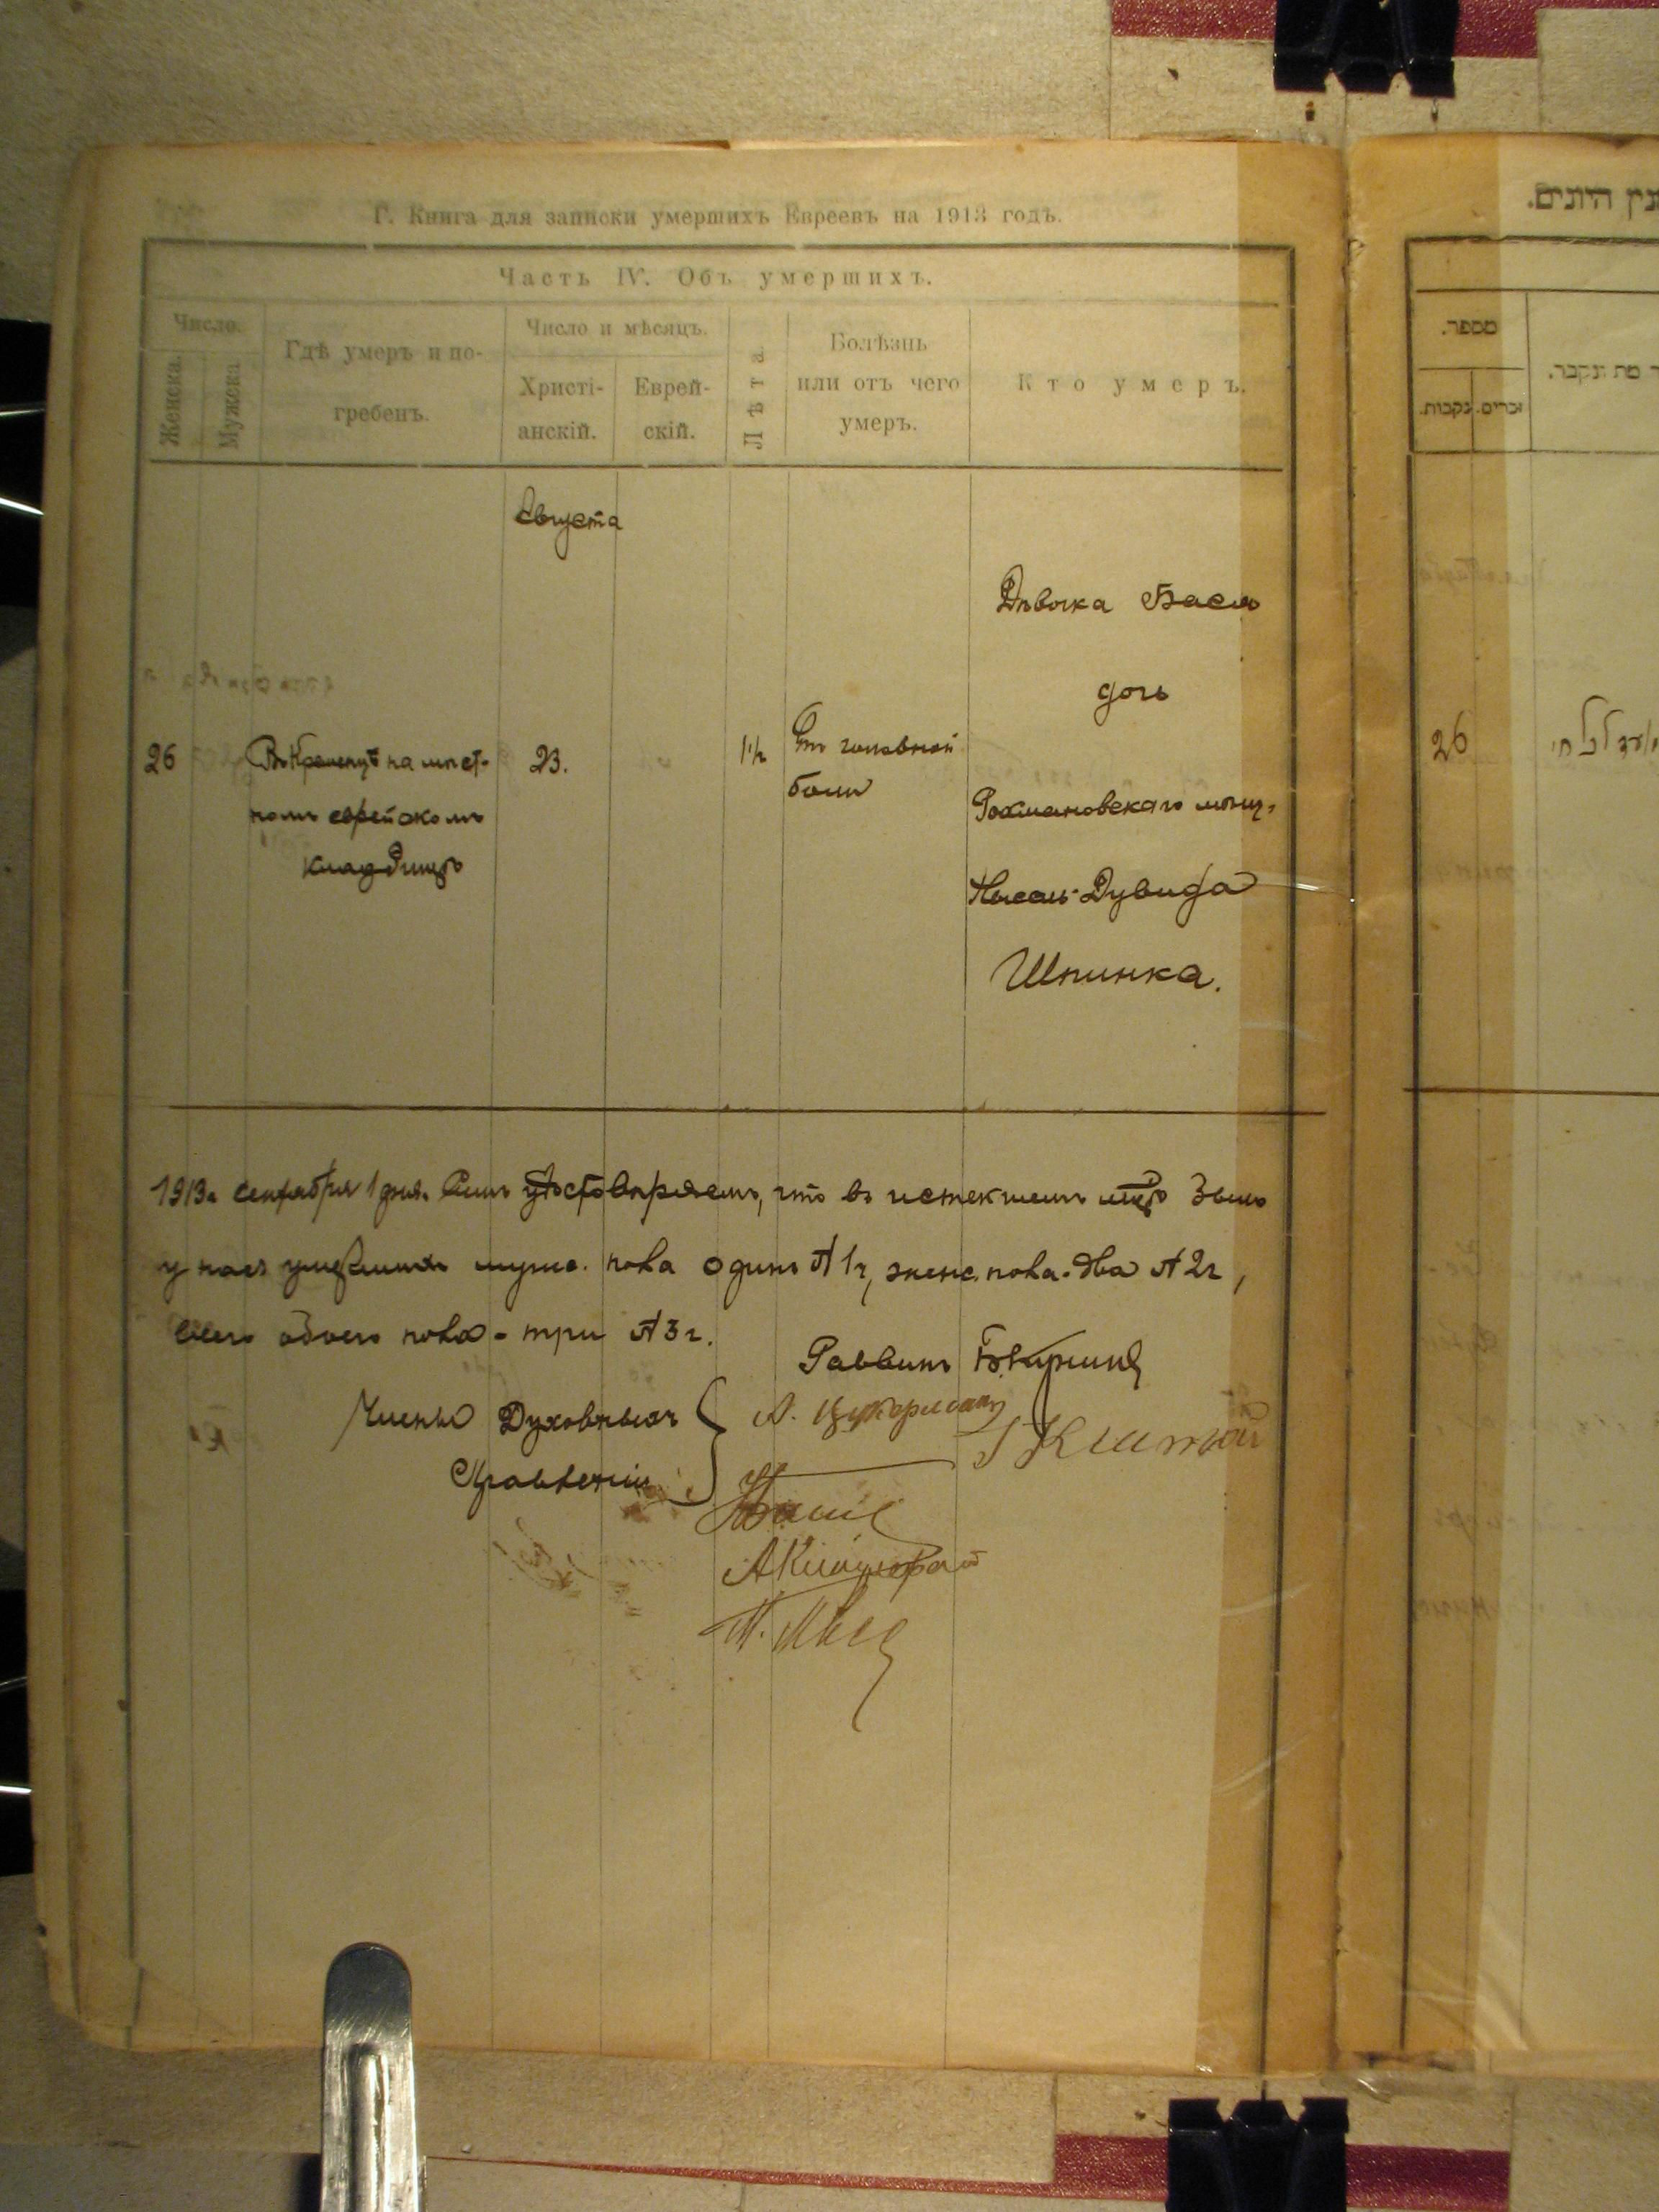 Г. Книга для записки умершихъ Евреевъ на 1913 годъ.
Часть IV. Объ умершихъ.
Число.
Женска.
Мужска
Гдѣ умеръ и по-
гребенъ.
Число и мѣсяцъ.
Христі-
анскій.
Еврей-
скій.
Лѣта
Болѣзнь
или отъ чего
умеръ.
Кто умеръ.
Августа
26
Въ Кременцѣ на мѣст-
номъ еврейскомъ
кладбищѣ
23.
1½
Отъ головной
боли
Дѣвочка Бася
дочь
Рохмановскаго мѣщ.
Нысель-Дувида
Шпинка.
1913 г. сентября 1 дня. Симъ удостовѣряемъ, что въ истекшемъ было
у насъ умершихъ муж. пола одинъ № 1й, женс. пола два № 2й,
всего обоего пола - три № 3й.
Раввинъ
Члены Духовныхъ
Правленій
А. Цукерманъ
מספר.
נקבות.
זכרים.
מת ונקבר.
26